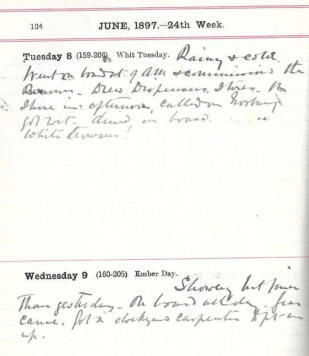 104 JUNE, 1897.—24th Week.
Tuesday 8 (159-206) Whit Tuesday. Rainy & cold.
Went on board at 9 AM & commissioned the
Drew Dispensers Stores. On
Shore in afternoon, called on
got wet. dined in board.
White trousers!
Wednesday 9 (160-205) Ember Day.
Showery but finer
Than yesterday. On board all day.
came. Got a dockyard carpenter to
up.